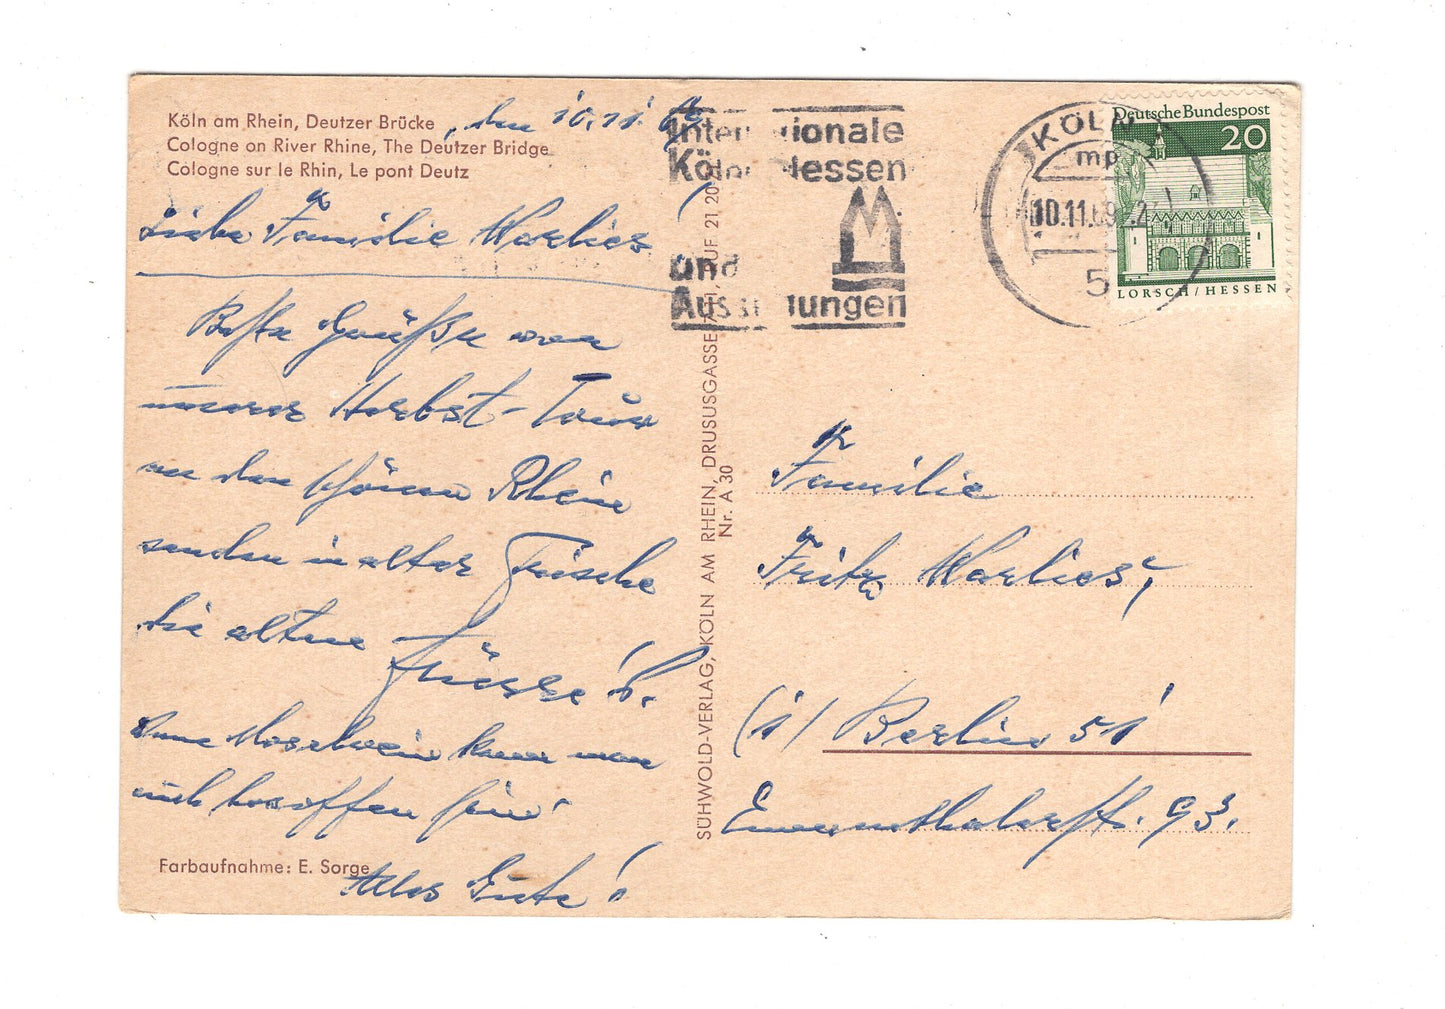 Köln am Rhein, Deutzer Brücke
Cologne on River Rhine, The Deutzer Bridge
Cologne sur le Rhin, Le pont Deutz
den 10.11.69
Liebe Familie Warlies!
Beste Grüße von
unserer Herbst-Tour
an den schönen Rhein
senden in alter Frische
die alten
Ohne Moselwein kann man
auch besoffen sein!
Alles Gute!
Farbaufnahme: E. Sorge
SÜHWOLD-VERLAG, KÖLN AM RHEIN, DRUSUSGASSE RUF 21 20
Nr. A 30
Internationale
Kölner Messen
und
Ausstellungen
KÖLN
mp
10.11.69
5
Deutsche Bundespost
20
LORSCH/HESSEN
Familie
Fritz Warlies,
(1) Berlin 51
Emmenthalerstr. 93.